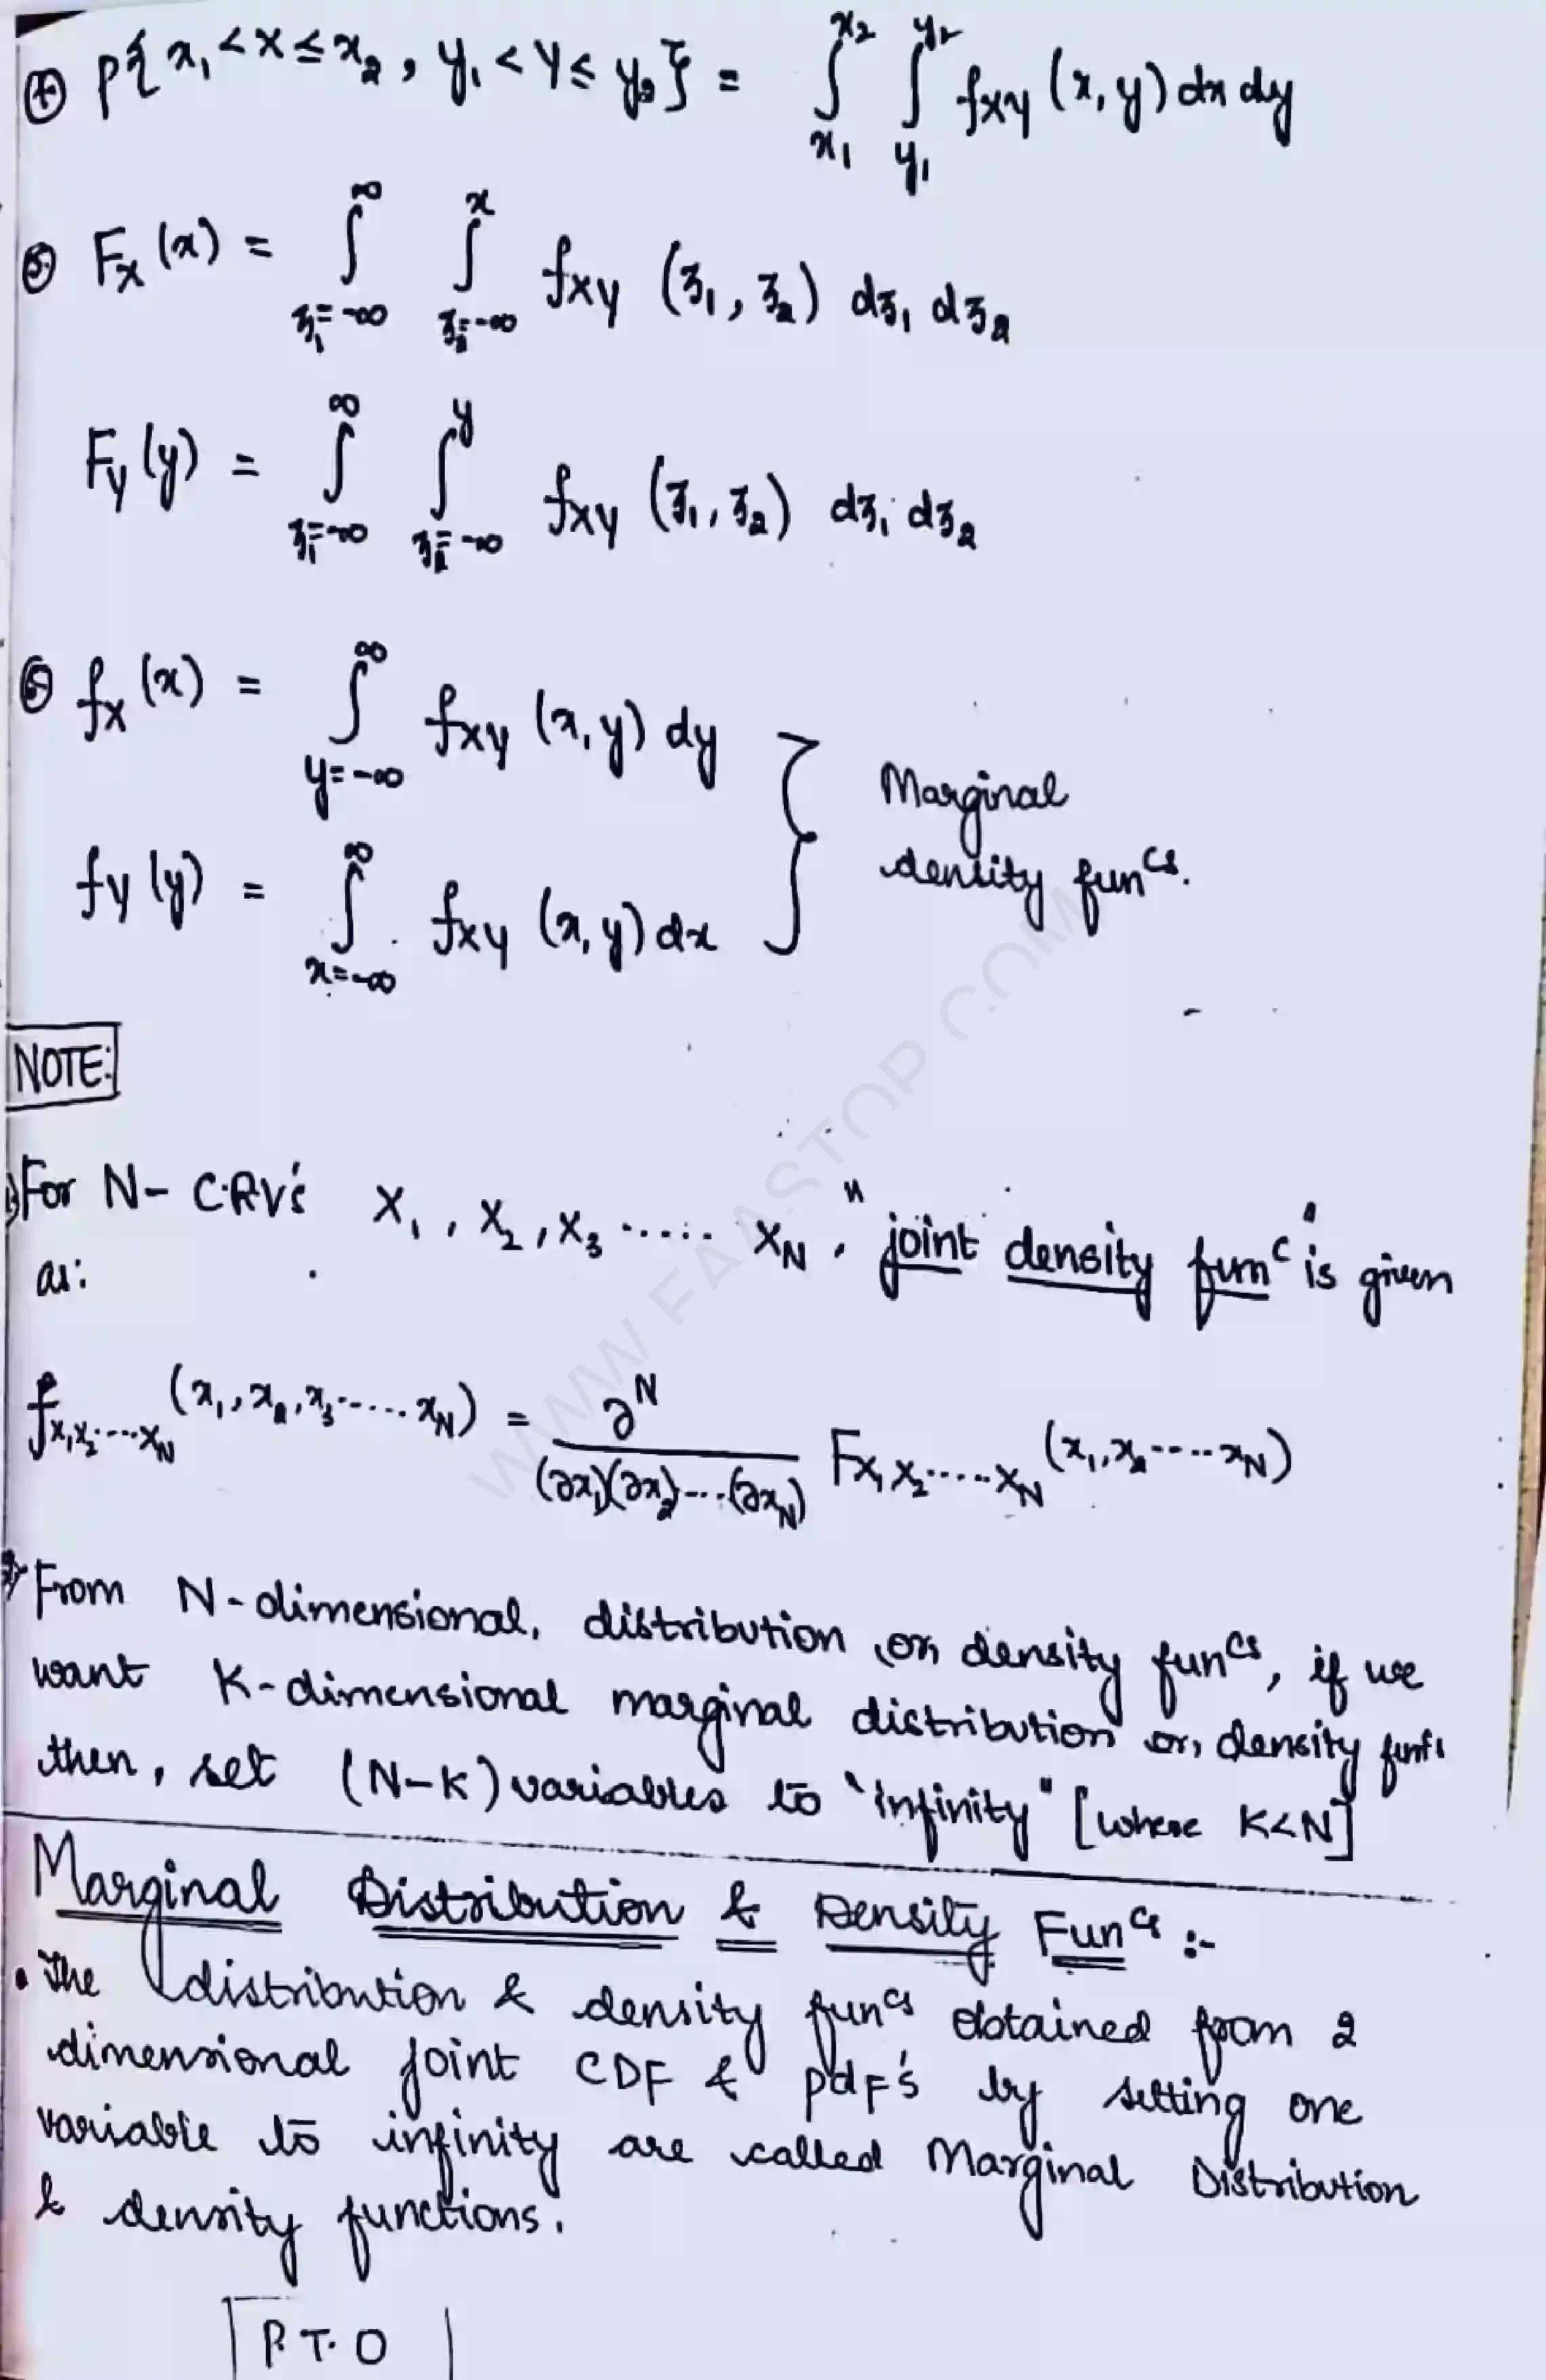 ④ P{x₁ < X ≤ x₂, y₁ < Y ≤ y₂} = ∫_{x₁}^{x₂} ∫_{y₁}^{y₂} f_{XY} (x, y) dx dy
⑤ F_X (x) = ∫_{ξ₁=-∞}^{∞} ∫_{ξ₂=-∞}^{x} f_{XY} (ξ₁, ξ₂) dξ₁ dξ₂
F_Y (y) = ∫_{ξ₁=-∞}^{∞} ∫_{ξ₂=-∞}^{y} f_{XY} (ξ₁, ξ₂) dξ₁ dξ₂
⑥ f_X (x) = ∫_{y=-∞}^{∞} f_{XY} (x, y) dy
Marginal
density funᶜˢ.
f_Y (y) = ∫_{x=-∞}^{∞} f_{XY} (x, y) dx
NOTE:
1) For N- C.RV's X₁, X₂, X₃ ..... X_N, "joint density funᶜ" is given
as:
f_{X₁X₂....X_N} (x₁, x₂, x₃ ..... x_N) = ∂ᴺ / (∂x₁)(∂x₂)....(∂x_N) F_{X₁X₂.....X_N} (x₁, x₂ .... x_N)
2) From N-dimensional, distribution (or) density funᶜˢ, if we
want K-dimensional marginal distribution or, density funᶜˢ
then, set (N-K) variables to "infinity" [where K<N]
Marginal Distribution & Density Funᶜˢ :-
• The distribution & density funᶜˢ obtained from 2
dimensional joint CDF & pdF's by setting one
variable to infinity are called Marginal Distribution
& density functions.
P.T.O
WWW.FAASTOP.COM